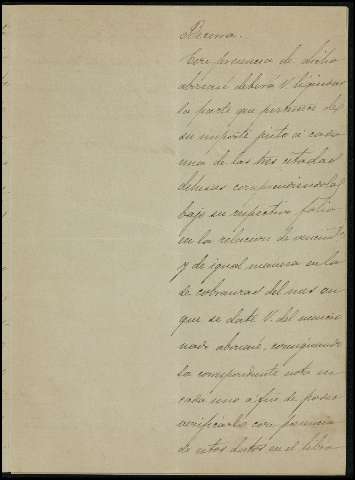 Decima.
Con presencia de dicho
abonaré deberá V. liquidar
la parte que pertenece de
su importe puto a cada
una de las tres citadas
dehesas comprendiendolas
bajo su respectivo folio
en la relacion de vencimto
y de igual manera en la
de cobranzas del mes en
que se date V. del mencio
nado abonaré, consignando
la correspondiente nota en
cada uno a fin de poder
verificarlo con presencia
de estos datos en el libro